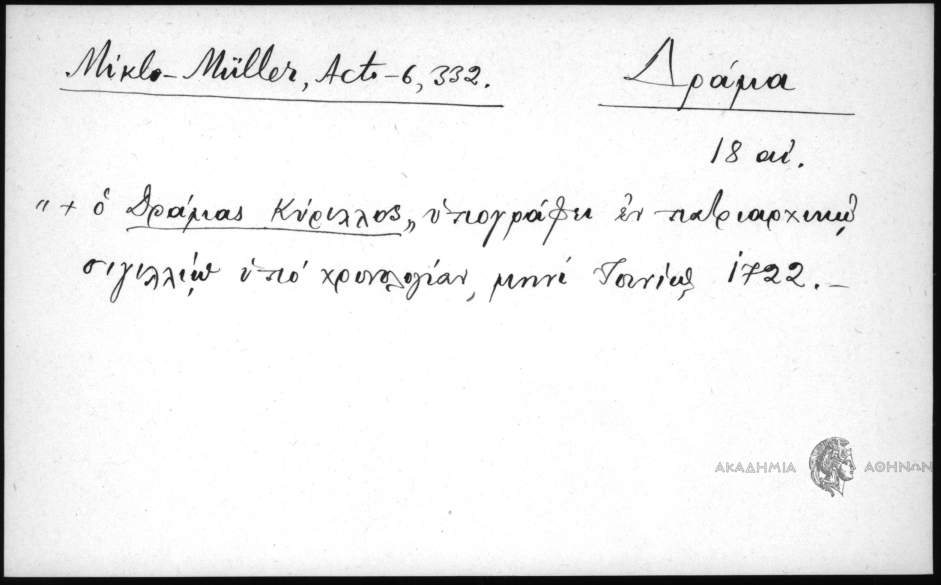 Mikl–Müller, Acta–6, 332.
Δράμα
18 αἰ.
“+ ὁ Δράμας Κύριλλος„ ὑπογράφει ἐν πατριαρχικῷ
σιγιλλίῳ ὑπό χρονολογίαν, μηνί Ἰουνίῳ 1722.–
ΑΚΑΔΗΜΙΑ ΑΘΗΝΩΝ